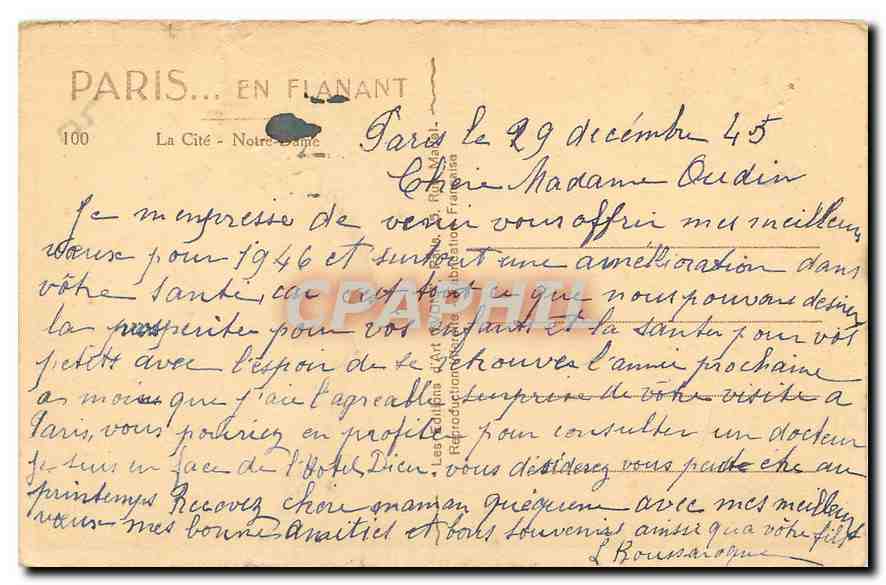 PARIS... EN FLANANT
100 La Cité - Notre-Dame
Paris le 29 decémbre 45
Chère Madame Oudin
Je m'enpresse de venir vous offrir mes meilleurs
vœux pour 1946 et surtout une amélioration dans
vôtre santé, car c'est tout ce que nous pouvons desirer
la prosperiter pour vos enfants et la santer pour vos
petits avec l'espoir de se retrouver l'année prochaine
a moins que j'aie l'agreable surprise de vôtre visite a
Paris, vous pouriez en profiter pour consulter un docteur
je suis en face de l'Hotel Dieu vous désiderez vous peut etre au
printemps Recevez chere maman avec mes meilleurs
vœux mes bonnes amitiés et bons souvenirs ainsie qua vôtre fils
L Roussarogue
Les Editions d'Art YVON, Paris, 15, Rue Martel
Reproduction interdite - Fabrication Française
CPAPHIL